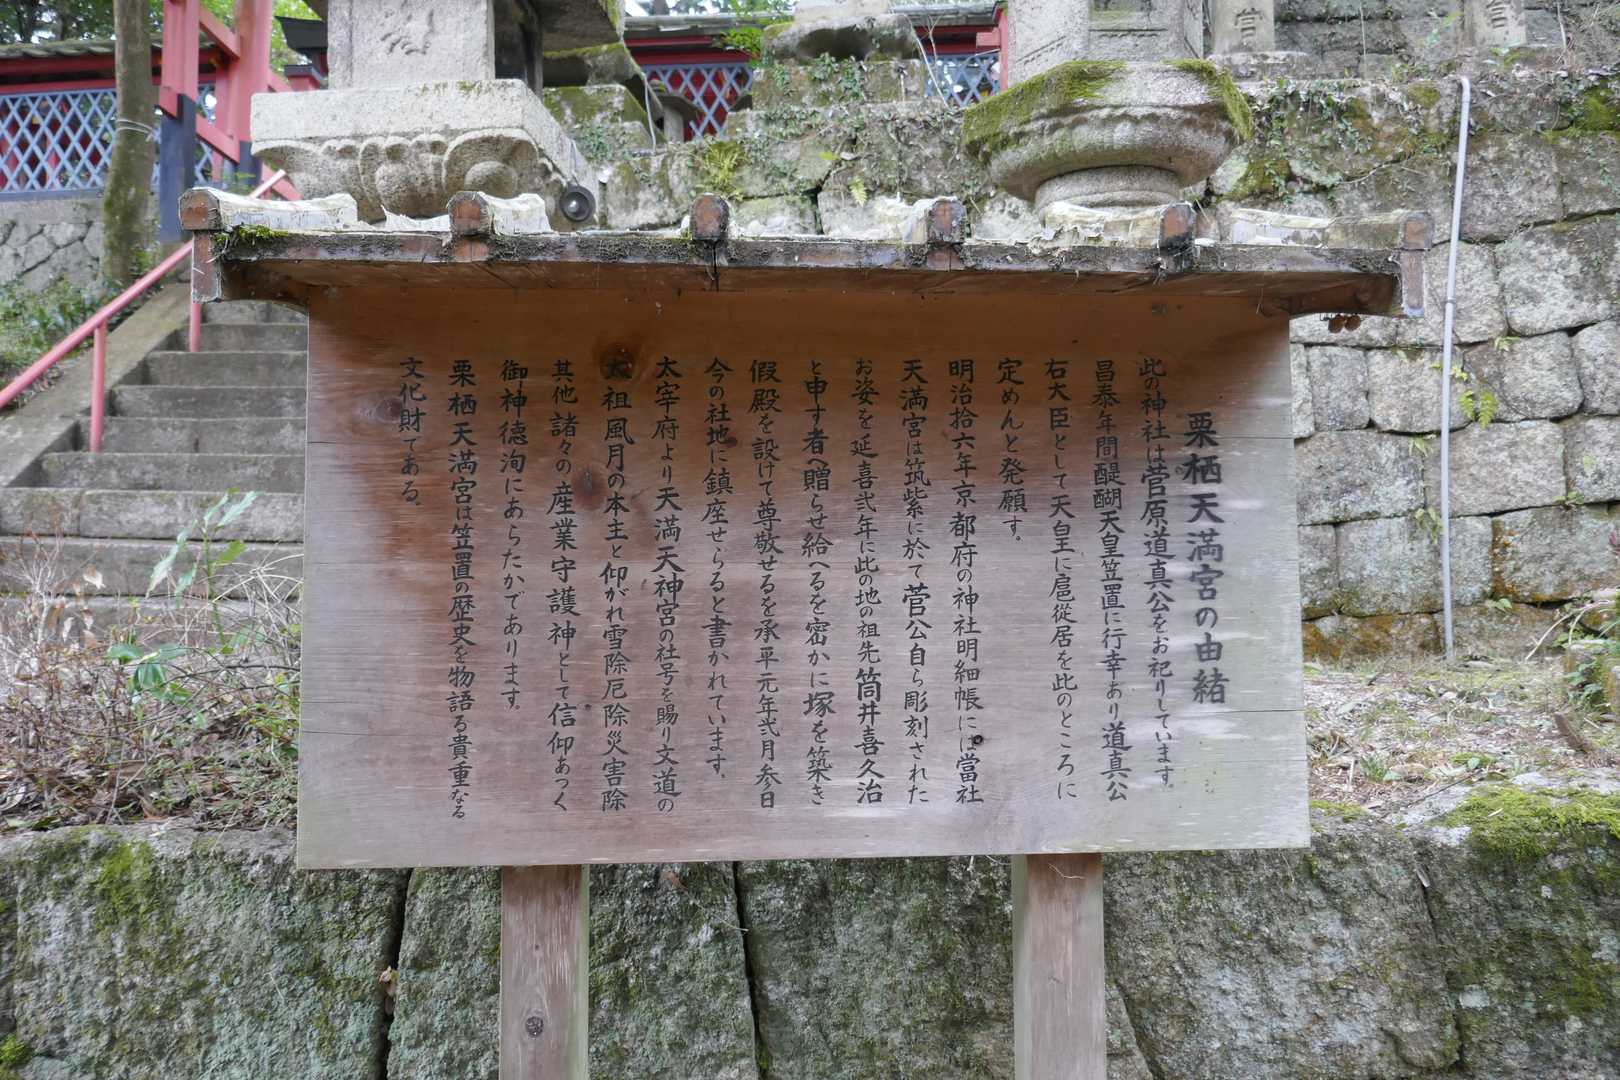 栗栖天満宮の由緒
此の神社は菅原道真公をお祀りしています。
昌泰年間醍醐天皇笠置に行幸あり道真公
右大臣として天皇に扈從居を此のところに
定めんと発願す。
明治拾六年京都府の神社明細帳には當社
天満宮は筑紫に於て菅公自ら彫刻された
お姿を延喜弐年に此の地の祖先筒井喜久治
と申す者へ贈らせ給へるを密かに塚を築き
假殿を設けて尊敬せるを承平元年弐月参日
今の社地に鎮座せらると書かれています。
太宰府より天満天神宮の社号を賜り文道の
太祖風月の本主と仰がれ雪除厄除災害除
其他諸々の産業守護神として信仰あつく
御神徳洵にあらたかであります。
栗栖天満宮は笠置の歴史を物語る貴重なる
文化財である。